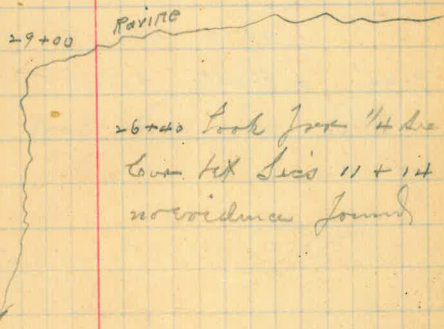 Ravine
29+00
26+40 Look for 1/4 Sec
Cor bet Sec's 11 + 14
no evidence found